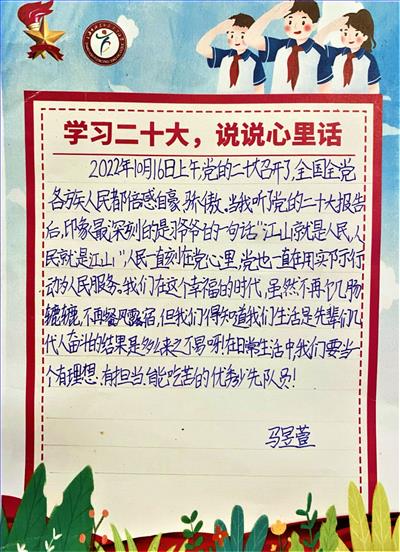 学习二十大，说说心里话
2022年10月16日上午,党的二十大召开了,全国全党
各族人民都倍感自豪、骄傲。当我听了党的二十大报告
后,印象最深刻的是习爷爷的一句话"江山就是人民,人
民就是江山"人民一直刻在党心里,党也一直在用实际行
动为人民服务。我们在这个幸福的时代,虽然不再饥肠
辘辘,不再餐风露宿,但我们得知道我们生活是先辈们几
代人奋斗的结果是多么来之不易呀!在日常生活中,我们要当
一个有理想.有担当.能吃苦的优秀少先队员!
马昱萱